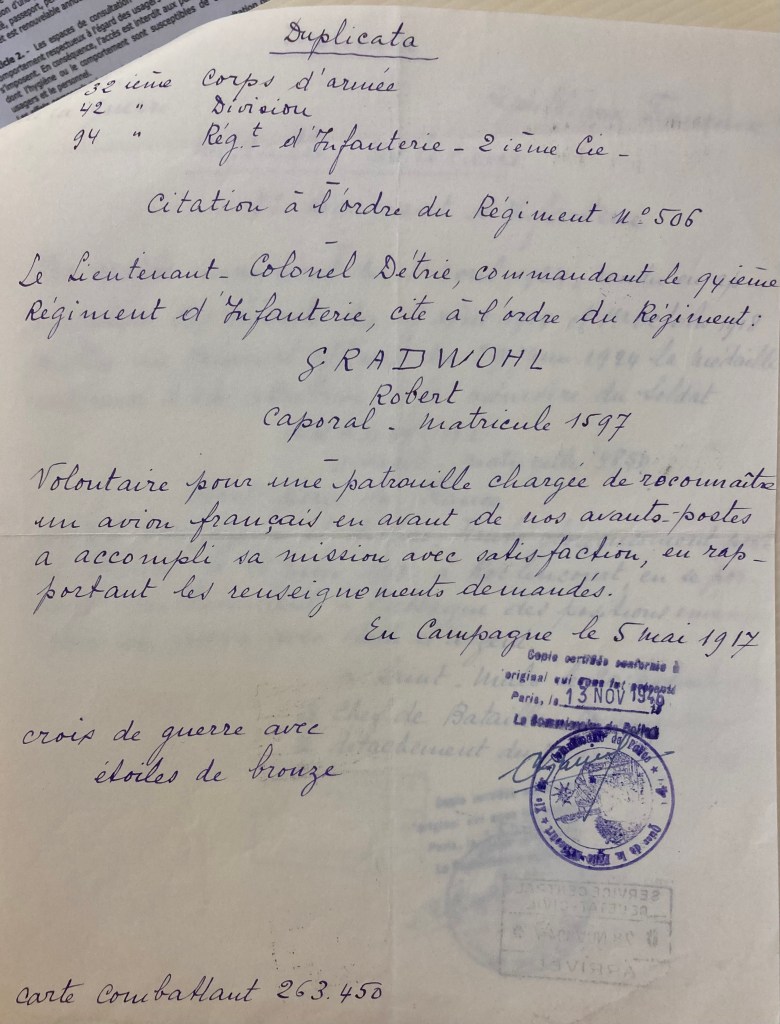 Duplicata
32 ième Corps d'armée
42 " Division
94 " Rég.t d'Infanterie - 2 ième Cie -
Citation à l'ordre du Régiment N° 506
Le Lieutenant-Colonel Détrie, commandant le 94ième
Régiment d'Infanterie, cite à l'ordre du Régiment :
GRADWOHL
Robert
Caporal - Matricule 1597
Volontaire pour une patrouille chargée de reconnaître
un avion français en avant de nos avants-postes
a accompli sa mission avec satisfaction, en rap-
portant les renseignements demandés.
En Campagne le 5 mai 1917
Copie certifiée conforme à
original qui nous fut présenté
Paris, le 13 NOV 1946
Le Commissaire de Police
croix de guerre avec
étoiles de bronze
SERVICE CENTRAL
ARRIVÉE
carte combattant 263.450